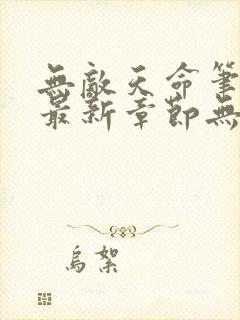 無敵天命筆
最新章節無
烏絮